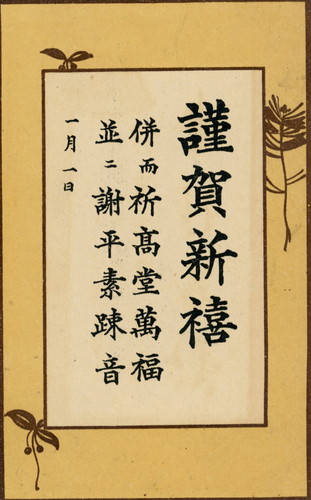 謹賀新禧
併而祈髙堂萬福
並ニ謝平素踈音
一月一日